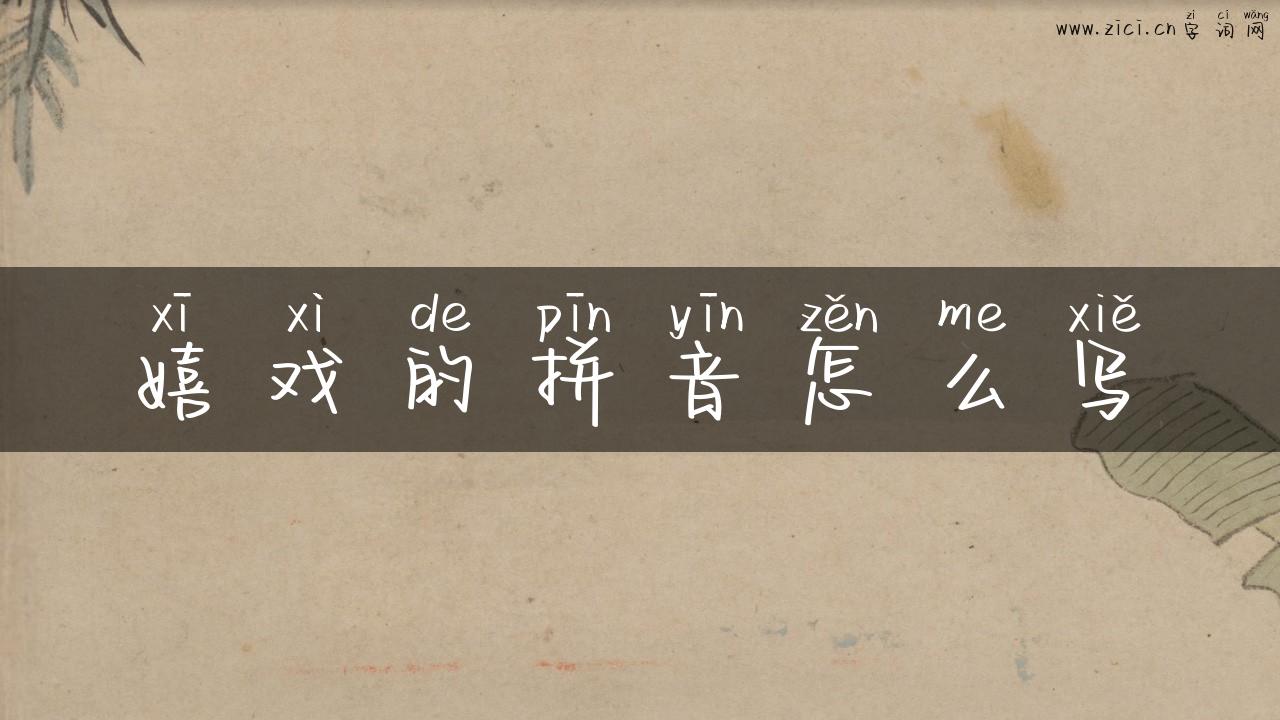 zì cí wǎng
www.zici.cn 字 词 网
xī xì de pīn yīn zěn me xiě
嬉 戏 的 拼 音 怎 么 写